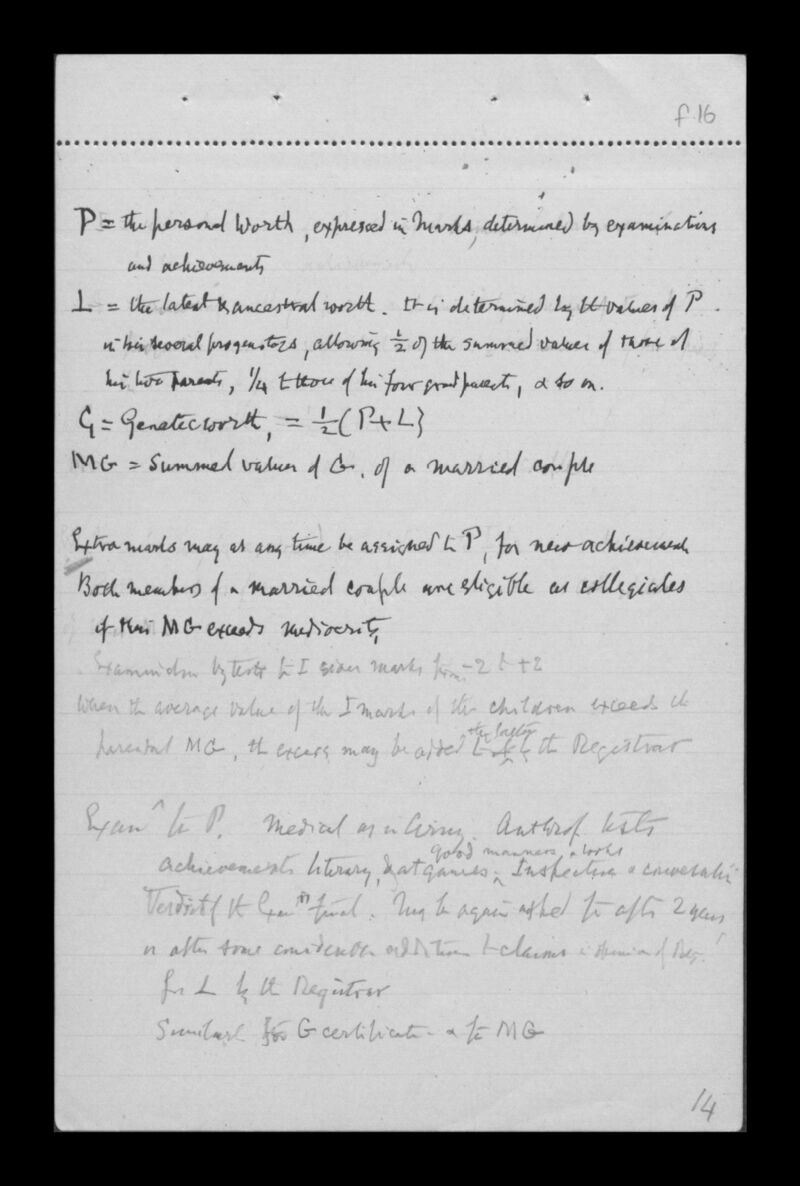 f.16
P = the personal worth, expressed in marks, determined by examinations
and achievements
L = the latent & ancestral worth. It is determined by the values of P
in his several progenitors, allowing ½ of the summed values of those of
his two parents, 1/4 to those of his four grandparents, & so on.
G = Genetic worth, = ½ (P+L)
MG = Summed values of G. of a married couple
Extra marks may at any time be assigned to P, for new achievements
Both members of a married couple are eligible as collegiates
if their MG exceeds mediocrity,
Examination by tests for I gives marks from -2 to +2
When the average value of the I marks of the children exceeds the
parental MG, the excess may be added to the latter by the Registrar
Exam^n for P. Medical as in Army. Anthrop tests
achievements literary, & at games, good manners, & looks Inspection & conversatn
Verdict of the Exam^rs final. May be again asked for after 2 years
or after some considerable additions to claims in opinion of Reg^r
for L by the Registrar
for G certificate & for MG
14